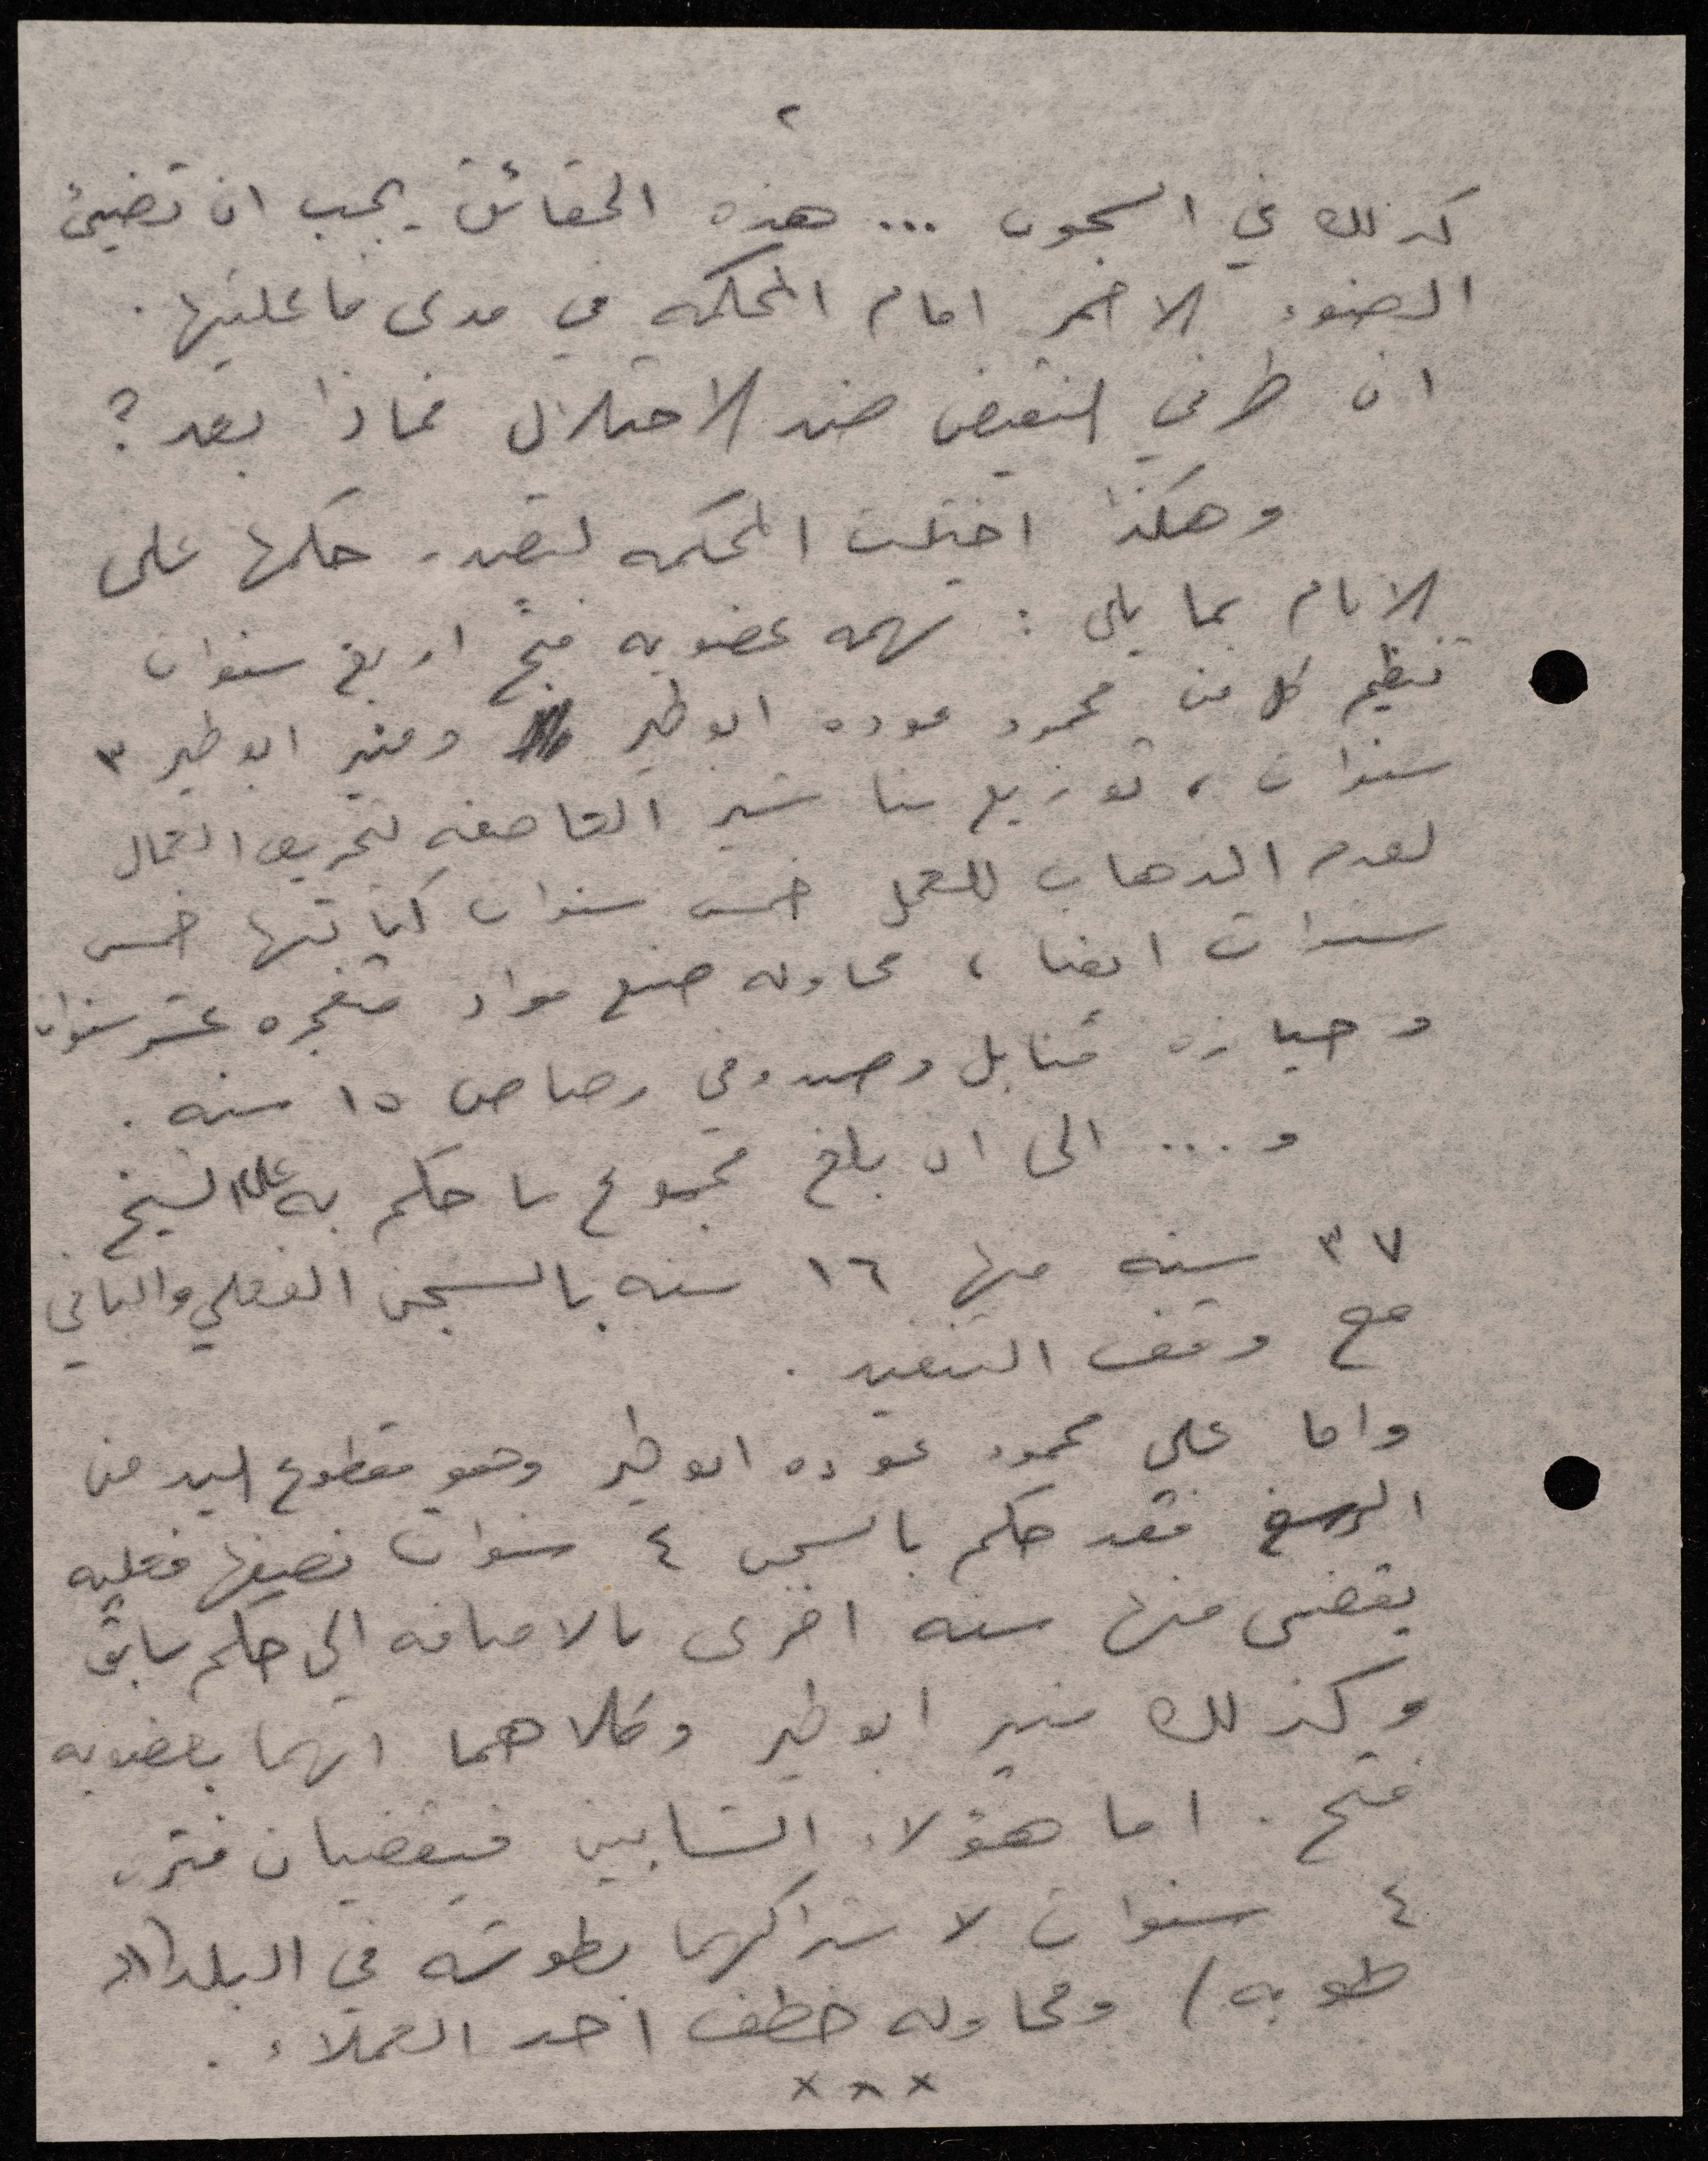 ٢
كذلك في السجون ... هذه الحقائق يجب ان تضيئ
الضوء الاحمر امام المحكمه في مدى فاعليتها .
ان طرفي النقيض ضد الاحتلال فماذا بعد ؟
وهكذا اختلت المحكمه لتصدر حكمها على
الامام بما يلي : تهمه عضويه فتح اربع سنوات
تنظيم كل من محمود عوده ابو طير ومنير ابو طير ٣
سنوات ، توزيع مناشير العاصفه لتحريض العمال
لعدم الذهاب للعمل خمس سنوات كتابتها خمس
سنوات ايضا ، محاوله صنع مواد متفجره عشر سنوات
وحيازه قنابل وصندوقي رصاص ١٥ سنه .
و .... الى ان بلغ مجموع ما حكم به على الشيخ
٣٧ سنه منها ١٦ سنه بالسجن الفعلي والباقي
مع وقف التنفيذ .
واما على محمود عوده ابو طير وهو مقطوع اليد من
الرسغ فقد حكم بالسجن ٤ سنوات نصفها فعليه
يقضى منها سنه اخرى بالاضافه الى حكم سابق
وكذلك منير ابو طير وكلاهما اتهما بعضويه
فتح . اما هؤلاء الشابين فيقضيان فتره
٤ سنوات لاشتراكهما بطوشه في البلد (ام
طوبه) ومحاوله خطف احد العملاء .
× × ×